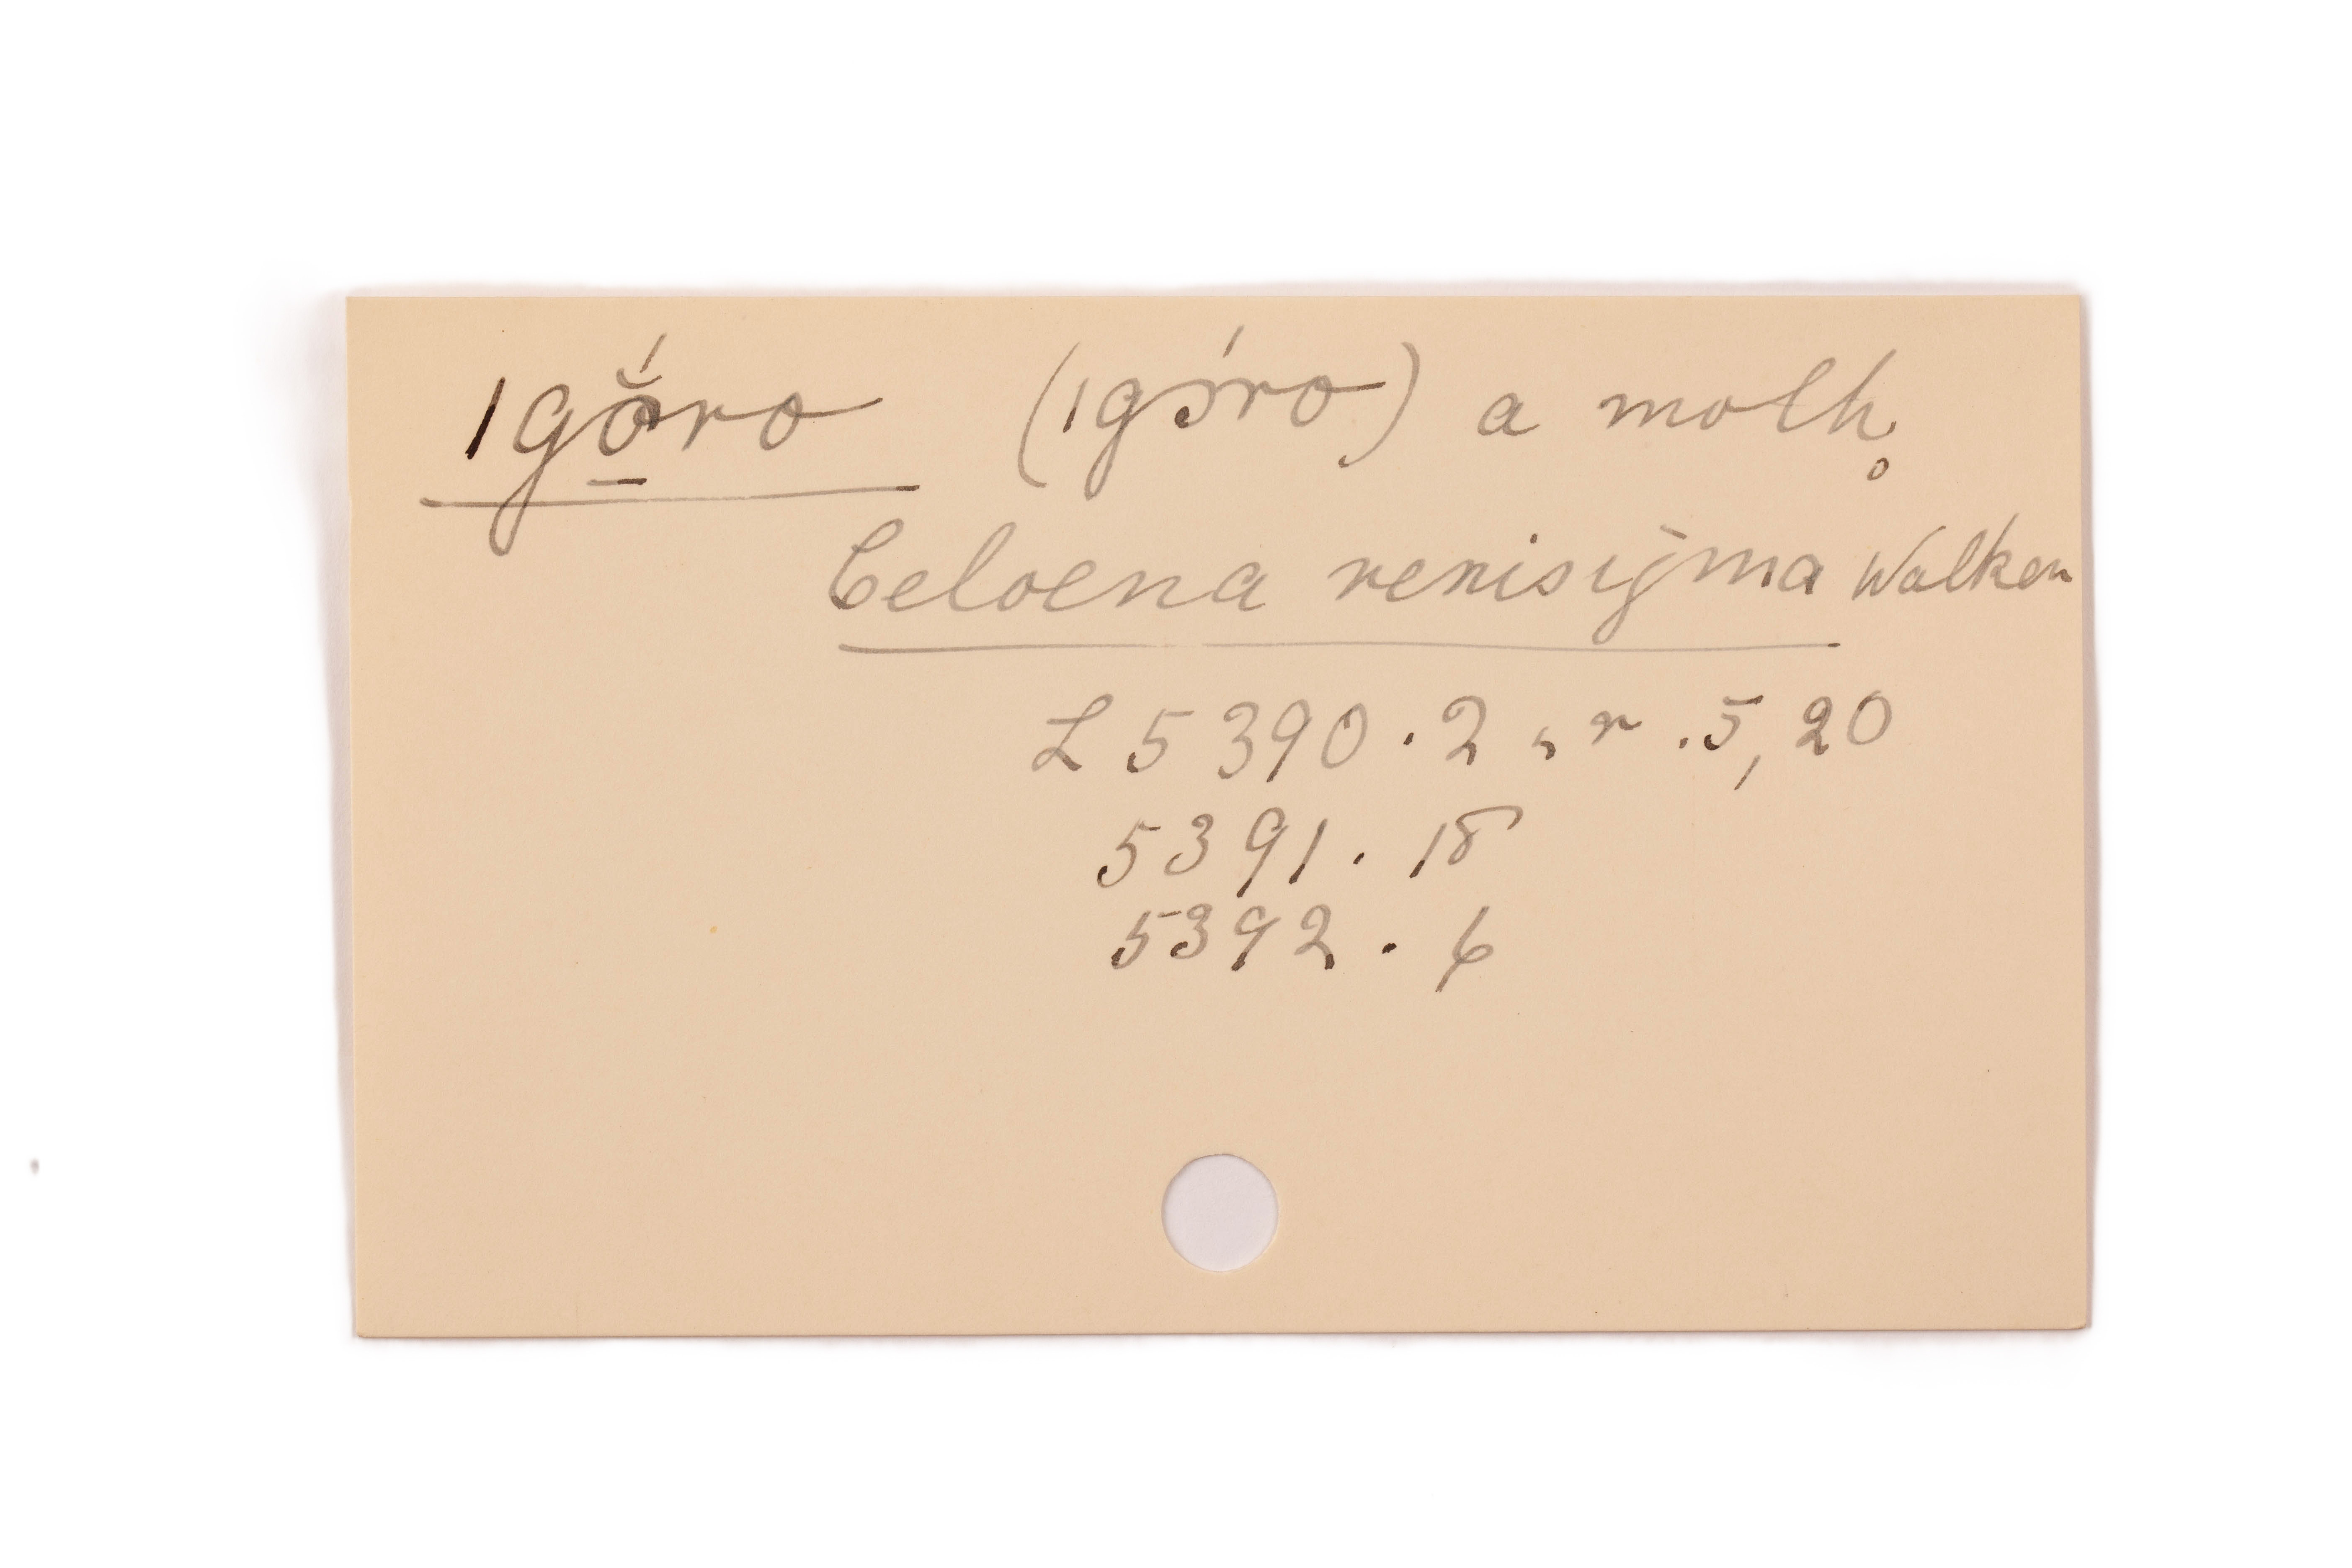 ıgŏ́ro (ıgɔ́ro) a moth.
Celoena renisigma Walker
L 5390 . 2 , r . 5, 20
5391 . 18
5392 . 6